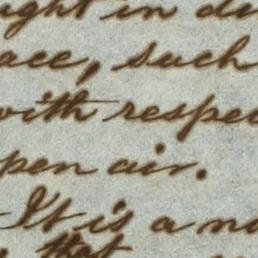 ught in de
ace, such
with respec
pen air.
It is a no
that